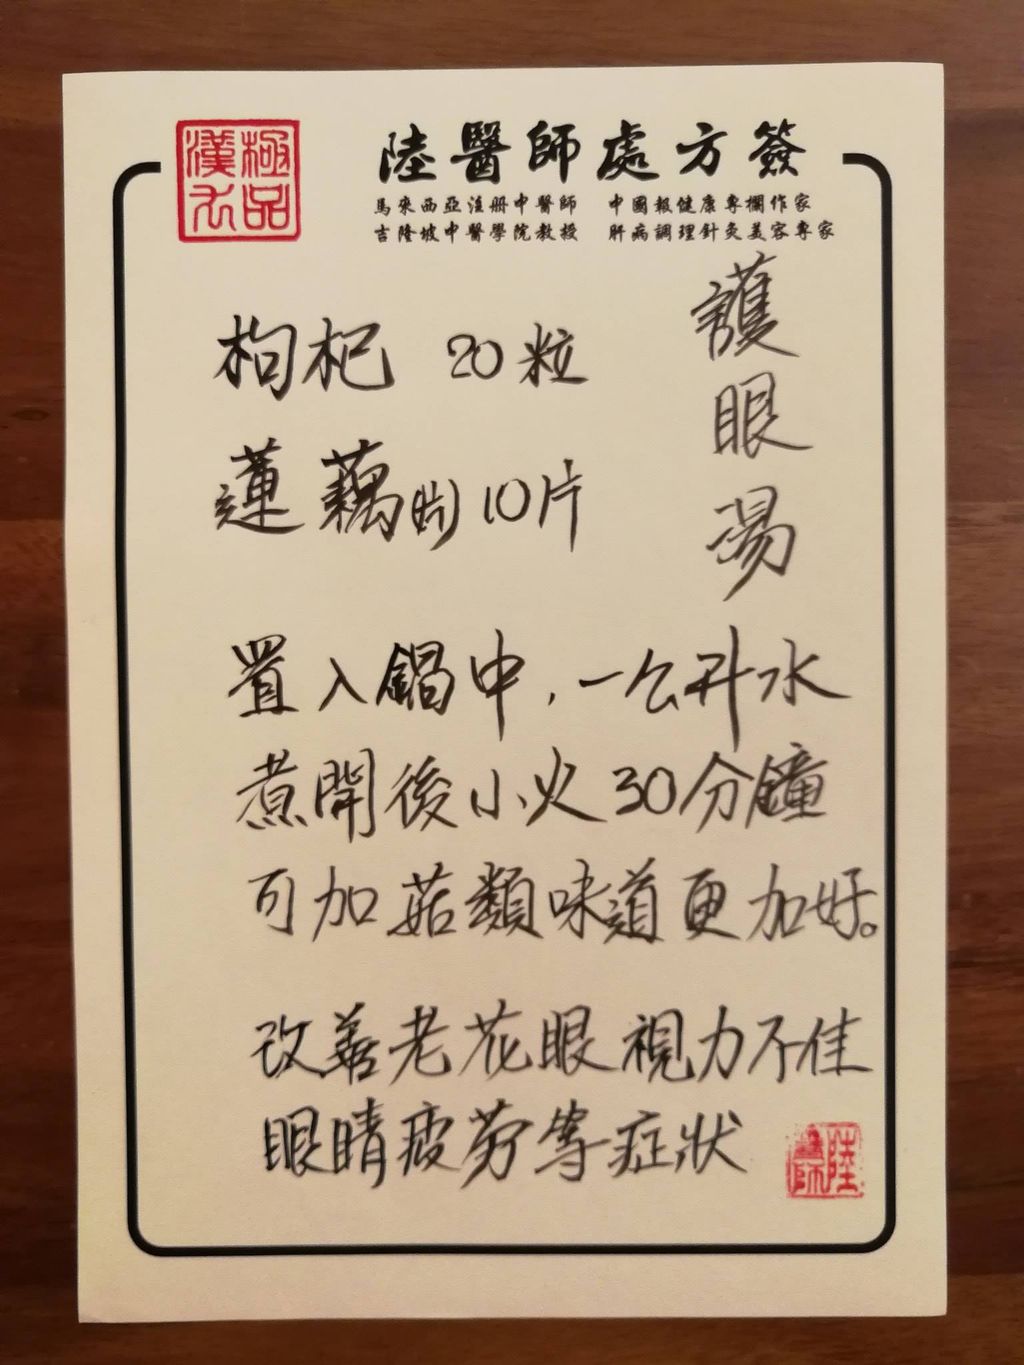 極品
漢方
陸醫師處方簽
馬來西亞注册中醫師 中國報健康專欄作家
吉隆坡中醫學院教授 肝病調理針灸美容專家
護眼湯
枸杞 20粒
蓮藕(鮮)10片
置入鍋中，一公升水
煮開後小火30分鐘
可加菇類味道更加好。
改善老花眼視力不佳
眼睛疲勞等症狀